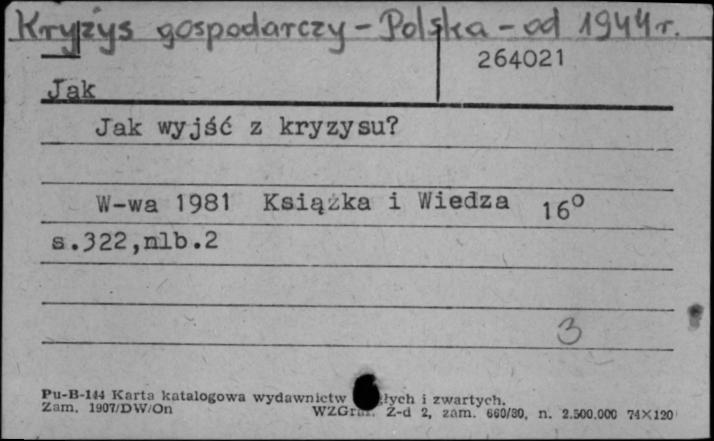 Kryzys gospodarczy - Polska - od 1944 r.
264021
Jak
Jak wyjść z kryzysu?
W-wa 1981 Książka i Wiedza 16°
s.322,nlb.2
3
Pu-B-144 Karta katalogowa wydawnictw i zwartych.
Zam. 1907/DW/On Z-d 2, zam. 660/80, n. 2.500.000 74×120